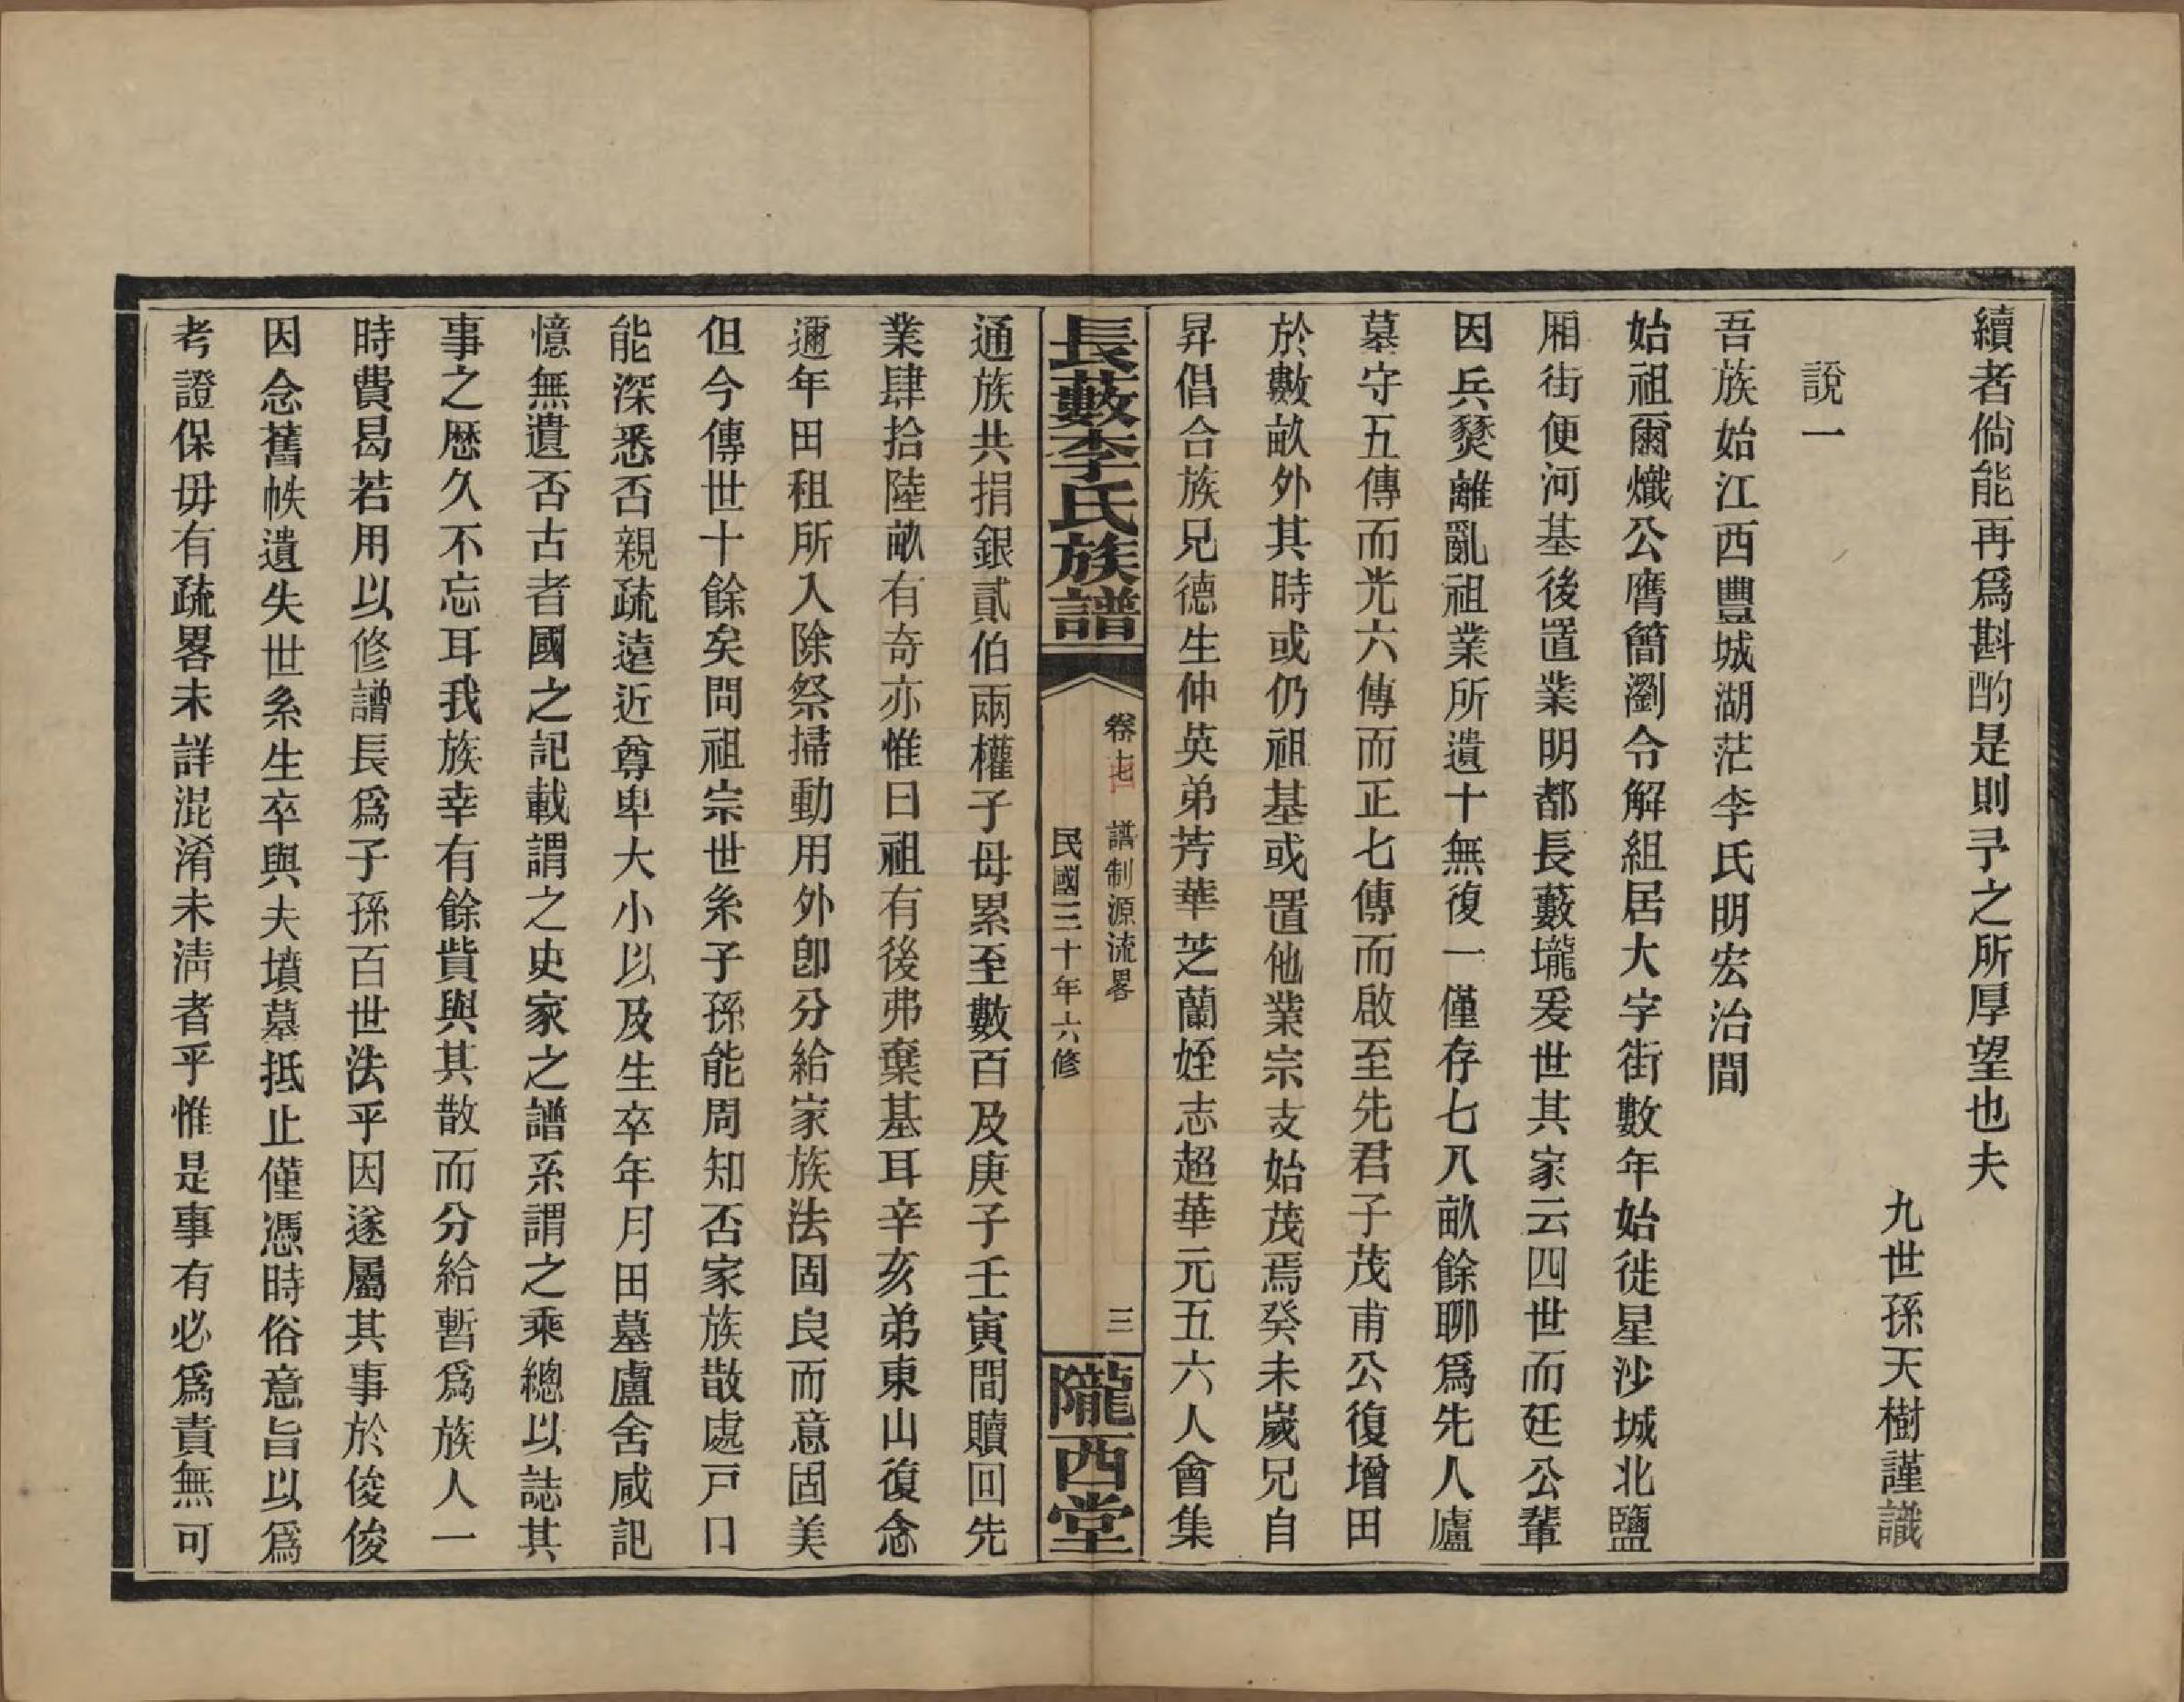 續者倘能再爲斟酌是則予之所厚望也夫
九世孫天樹謹識
說一
吾族始江西豐城湖茫李氏明宏治間
始祖爾熾公膺簡瀏令解組居大字街數年始徙星沙城北鹽
厢街便河基後置業明都長藪壠爰世其家云四世而廷公輩
因兵燹離亂祖業所遺十無復一僅存七八畝餘聊爲先人廬
墓守五傳而光六傳而正七傳而啟至先君子茂甫公復增田
於數畝外其時或仍祖基或置他業宗支始茂焉癸未歲兄自
昇倡合族兄德生仲英弟芳華芝蘭姪志超華元五六人會集
長藪李氏族譜
卷七
譜制源流畧
三
民國三十年六修
隴西堂
通族共捐銀貳伯兩權子母累至數百及庚子壬寅間贖回先
業肆拾陸畝有奇亦惟曰祖有後弗棄基耳辛亥弟東山復念
邇年田租所入除祭掃動用外卽分給家族法固良而意固美
但今傳世十餘矣問祖宗世系子孫能周知否家族散處戸口
能深悉否親疏遠近尊卑大小以及生卒年月田墓盧舍咸記
憶無遺否古者國之記載謂之史家之譜系謂之乘總以誌其
事之歴久不忘耳我族幸有餘貲與其散而分給暫爲族人一
時費曷若用以修譜長爲子孫百世法乎因遂屬其事於俊俊
因念舊帙遺失世系生卒與夫墳墓抵止僅憑時俗意旨以爲
考證保毋有疏畧未詳混淆未淸者乎惟是事有必爲責無可